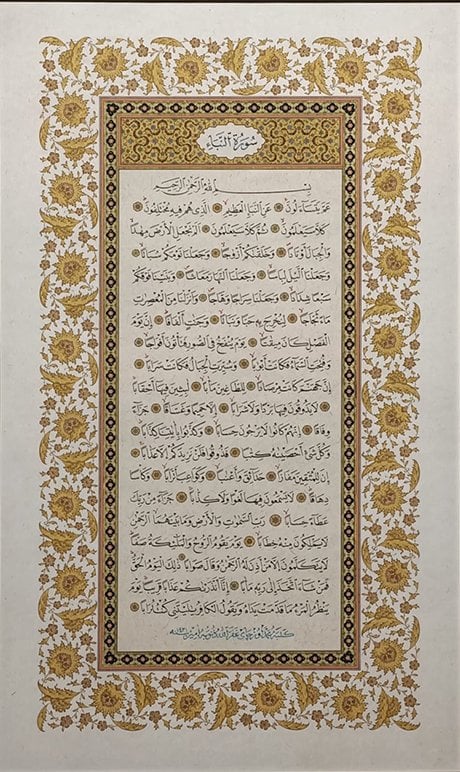 سورة النبأ
بسم الله الرحمن الرحيم
عَمَّ يَتَسَاءَلُونَ عَنِ النَّبَإِ الْعَظِيمِ الَّذِي هُمْ فِيهِ مُخْتَلِفُونَ
كَلَّا سَيَعْلَمُونَ ثُمَّ كَلَّا سَيَعْلَمُونَ أَلَمْ نَجْعَلِ الْأَرْضَ مِهَادًا
وَالْجِبَالَ أَوْتَادًا وَخَلَقْنَاكُمْ أَزْوَاجًا وَجَعَلْنَا نَوْمَكُمْ سُبَاتًا
وَجَعَلْنَا اللَّيْلَ لِبَاسًا وَجَعَلْنَا النَّهَارَ مَعَاشًا وَبَنَيْنَا فَوْقَكُمْ
سَبْعًا شِدَادًا وَجَعَلْنَا سِرَاجًا وَهَّاجًا وَأَنْزَلْنَا مِنَ الْمُعْصِرَاتِ
مَاءً ثَجَّاجًا لِنُخْرِجَ بِهِ حَبًّا وَنَبَاتًا وَجَنَّاتٍ أَلْفَافًا إِنَّ يَوْمَ
الْفَصْلِ كَانَ مِيقَاتًا يَوْمَ يُنْفَخُ فِي الصُّورِ فَتَأْتُونَ أَفْوَاجًا
وَفُتِحَتِ السَّمَاءُ فَكَانَتْ أَبْوَابًا وَسُيِّرَتِ الْجِبَالُ فَكَانَتْ سَرَابًا
إِنَّ جَهَنَّمَ كَانَتْ مِرْصَادًا لِلطَّاغِينَ مَآبًا لَابِثِينَ فِيهَا أَحْقَابًا
لَا يَذُوقُونَ فِيهَا بَرْدًا وَلَا شَرَابًا إِلَّا حَمِيمًا وَغَسَّاقًا جَزَاءً
وِفَاقًا إِنَّهُمْ كَانُوا لَا يَرْجُونَ حِسَابًا وَكَذَّبُوا بِآيَاتِنَا كِذَّابًا
وَكُلَّ شَيْءٍ أَحْصَيْنَاهُ كِتَابًا فَذُوقُوا فَلَنْ نَزِيدَكُمْ إِلَّا عَذَابًا
إِنَّ لِلْمُتَّقِينَ مَفَازًا حَدَائِقَ وَأَعْنَابًا وَكَوَاعِبَ أَتْرَابًا وَكَأْسًا
دِهَاقًا لَا يَسْمَعُونَ فِيهَا لَغْوًا وَلَا كِذَّابًا جَزَاءً مِنْ رَبِّكَ
عَطَاءً حِسَابًا رَبِّ السَّمَاوَاتِ وَالْأَرْضِ وَمَا بَيْنَهُمَا الرَّحْمَنِ
لَا يَمْلِكُونَ مِنْهُ خِطَابًا يَوْمَ يَقُومُ الرُّوحُ وَالْمَلَائِكَةُ صَفًّا
لَا يَتَكَلَّمُونَ إِلَّا مَنْ أَذِنَ لَهُ الرَّحْمَنُ وَقَالَ صَوَابًا ذَلِكَ الْيَوْمُ الْحَقُّ
فَمَنْ شَاءَ اتَّخَذَ إِلَى رَبِّهِ مَآبًا إِنَّا أَنْذَرْنَاكُمْ عَذَابًا قَرِيبًا يَوْمَ
يَنْظُرُ الْمَرْءُ مَا قَدَّمَتْ يَدَاهُ وَيَقُولُ الْكَافِرُ يَا لَيْتَنِي كُنْتُ تُرَابًا